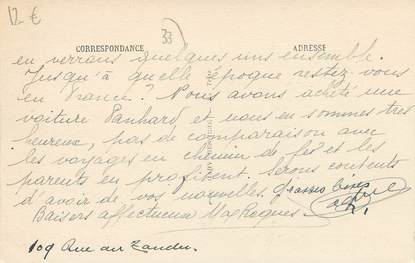 12 €
33
CORRESPONDANCE
ADRESSE
en verrons quelques uns ensemble.
Jusqu'à quelle époque restez-vous
en France? Nous avons acheté une
voiture Panhard et nous en sommes très
heureux, pas de comparaison avec
les voyages en chemin de fer et les
parents en profitent. Serons contents
d'avoir de vos nouvelles. grosses bises
Baisers affectueux
109 Rue au